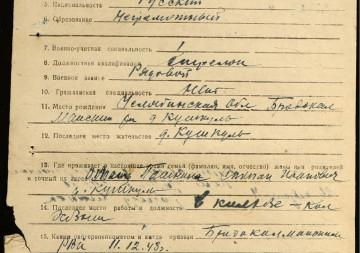 5. Национальность Русский
6. Образование Неграмотный
7. Военно-учетная специальность 1
8. Должностная квалификация стрелок
9. Военное звание Рядовой
10. Гражданская специальность Нет
11. Место рождения Челябинская обл
д Кушкуль
12. Последнее место жительства д. Кушкуль
13. Где проживает в настоящее время семья (фамилия, имя, отчество) жены или родителей
и точный их адрес Отец
д. Кушкуль
14. Последнее место работы и должность в колхозе — кол
хозник
15. Каким обворвоенкоматом и когда призван
РВК 11.12.43 г.